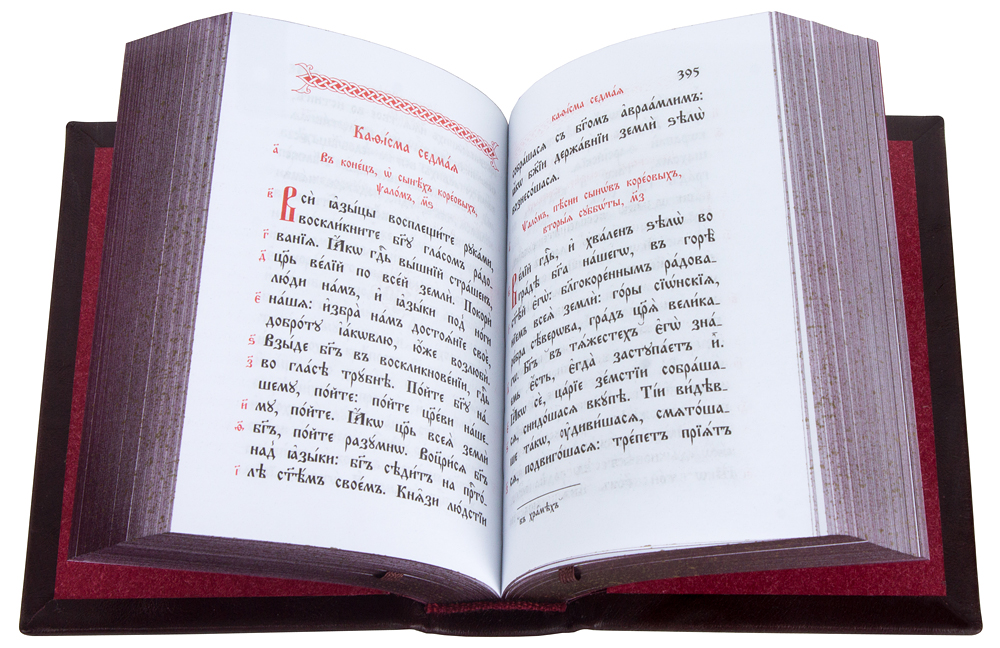 Каѳі́сма седма́ѧ
а҃
Въ коне́цъ, ѡ҆ сынѣ́хъ коре́овыхъ,
ѱало́мъ, м҃ѕ
в҃
Всѝ ꙗ҆зы́цы восплещи́те рꙋка́ми,
воскли́кните бг҃ꙋ гла́сомъ ра́до-
г҃
ва́нїѧ. Ꙗ҆́кѡ гдⷭ҇ь вы́шнїй стра́шенъ,
д҃
цр҃ь ве́лїй по все́й землѝ. Покорѝ
лю́ди на́мъ, и҆ ꙗ҆зы́ки под̾ но́ги
є҃
на́шѧ: и҆збра̀ на́мъ достоѧ́нїе своѐ,
добро́тꙋ і҆а́кѡвлю, ю҆́же возлюбѝ.
ѕ҃
Взы́де бг҃ъ въ воскликнове́нїи, гдⷭ҇ь
з҃
во гла́сѣ трꙋ́бнѣ. По́йте бг҃ꙋ на́-
шемꙋ, по́йте: по́йте цр҃е́ви на́ше-
и҃
мꙋ, по́йте. Ꙗ҆́кѡ цр҃ь всеѧ̀ землѝ
ѳ҃
бг҃ъ, по́йте разꙋ́мнѡ. Воцр҃и́сѧ бг҃ъ
над̾ ꙗ҆зы́ки: бг҃ъ сѣди́тъ на прⷭ҇то́-
і҃
лѣ ст҃ѣ́мъ свое́мъ. Кнѧ̑зи лю́дстїи
395
каѳі́сма седма́ѧ
собра́шасѧ съ бг҃омъ а҆враа́млимъ:
ꙗ҆́кѡ бж҃їи держа́внїи землѝ ѕѣлѡ̀
вознесо́шасѧ.
Ѱало́мъ, пѣ́сни сынѡ́въ коре́овыхъ,
вторы́ѧ сꙋббѡ́ты, м҃з
Ве́лїй гдⷭ҇ь, и҆ хва́ленъ ѕѣлѡ̀ во
гра́дѣ бг҃а на́шегѡ, въ горѣ̀
ст҃ѣ́й є҆гѡ̀: бл҃гокоре́ннымъ ра́дова-
нїемъ всеѧ̀ землѝ: го́ры сїѡ́нскїѧ,
ре́бра сѣ́верѡва, гра́дъ цр҃ѧ̀ вели́ка-
гѡ. Бг҃ъ въ тѧ́жестехъ є҆гѡ̀ зна́-
емь є҆́сть, є҆гда̀ застꙋпа́етъ и҆̀.
Ꙗ҆́кѡ сѐ, ца́рїе зе́мстїи собра́ша-
сѧ, снидо́шасѧ вкꙋ́пѣ. Ті́и ви́дѣв-
ше та́кѡ, ᲂу҆диви́шасѧ, смѧто́ша-
сѧ, подвиго́шасѧ: тре́петъ прїѧ́тъ
въ хра́мѣхъ